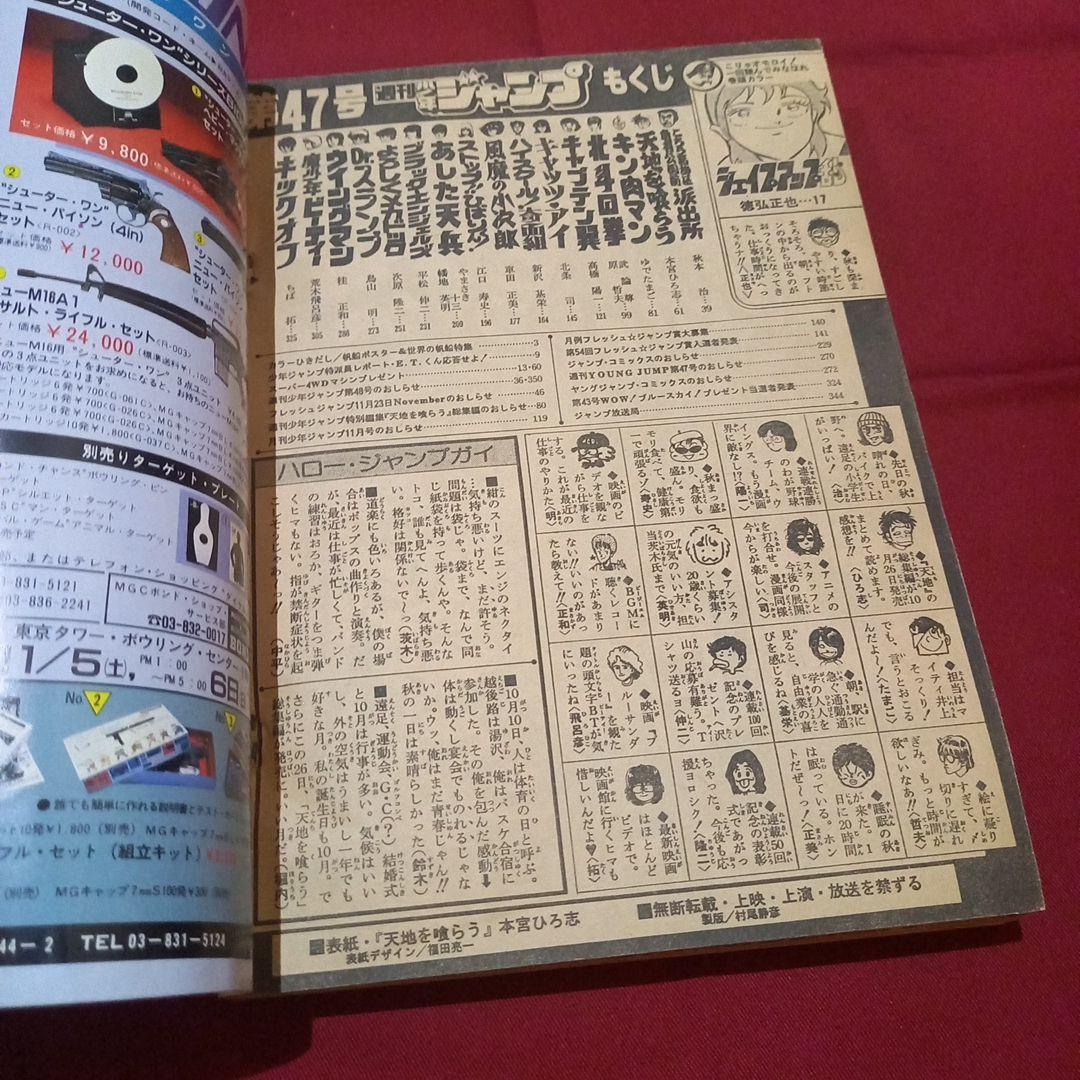 第47号 週刊少年ジャンプ もくじ
こりゃオモロイ!
一回読んでみなはれ
巻頭カラー
シェイプアップ乱
徳弘正也…17
こちら葛飾区亀有公園前派出所 秋本 治…39
天地を喰らう 本宮ひろ志…61
キン肉マン ゆでたまご…81
北斗の拳 武論尊 原哲夫
キャプテン翼 高橋陽一…121
キャッツ・アイ 北条 司…145
ハイスクール!奇面組 新沢基栄…164
風魔の小次郎 車田正美…177
ストップ!!ひばりくん! 江口寿史…196
あした天兵 やまさき十三 幡地英明…209
ブラック・エンジェルズ 平松伸二…231
よろしくメカドック 次原隆二…251
Dr.スランプ 鳥山 明…273
ウイングマン 桂 正和…286
魔少年ビーティー 荒木飛呂彦…305
キックオフ ちば 拓…325
カラーひきだし/帆船ポスター&世界の帆船特集…3
少年ジャンプ特派員レポート・E.T.くん応答せよ!…9
スーパー4WDマシンプレゼント…13・60
週刊少年ジャンプ第48号のおしらせ…36・350
フレッシュジャンプ11月23日Novemberのおしらせ…46
週刊少年ジャンプ特別編集「天地を喰らう」総集編のおしらせ…80
月刊少年ジャンプ11月号のおしらせ…119
月例フレッシュ☆ジャンプ賞大募集…140
第54回フレッシュ☆ジャンプ賞入選者発表…141
ジャンプ・コミックスのおしらせ…229
週刊YOUNG JUMP第47号のおしらせ…270
ヤングジャンプ・コミックスのおしらせ…272
第43号WOW!ブルースカイ!プレゼント当選者発表…324
ジャンプ放送局…344
◆先日の秋
晴れの日、
バイクで上
野へ。遠足の小学生
がいっぱい!〈治〉
◆連戦連勝
のわが野球
チーム、ウ
イングス、もう漫画
界に敵なし!?〈陽一〉
◆秋まっ盛
り、食欲も
盛ん。モリ
モリ食べて、健康第
一で頑張るゾ〈寿史〉
◆映画のビ
デオを観な
がら仕事を
する。これが最近の
仕事のやりかた〈明〉
◆「天地」の
総集編が10
月26日発売。
まとめて読めます。
感想を!!〈ひろ志〉
◆アニメの
スタッフと
今後の展開
を打合せ。漫画同様
今から楽しい〈司〉
◆アシスタ
ント募集!
20歳くらい
の元気のいい方。担
当茨木氏まで〈英明〉
◆BGMに
聴くレコー
ドがあまり
ない!!いいのがあっ
たら教えて!〈正和〉
◆担当はマ
イティ井上
そっくり!
でも、言うとおこる
んだよ〜!〈たまご〉
◆朝、駅に
急ぐ通勤通
学の人人を
見ると、自由業の喜
びを感じるね〈基栄〉
◆連載100回
記念のプレ
ゼントへ沢
山の応募有難う。T
シャツ送るョ〈伸二〉
◆映画「ブ
ルーサンダ
ー」を観た
題の頭文字BTが気
にいったね〈飛呂彦〉
◆絵に凝り
すぎて、〆
切りに遅れ
ぎみ。もっと時間が
欲しいなぁ!〈哲夫〉
◆睡眠の秋
が来た。1
日に20時間
は眠っている。ホン
トだぜ〜っ〈正美〉
◆連載50回
記念の表彰
式であがっ
ちゃった。今後も応
援ヨロシク!〈隆二〉
◆最新映画
はほとんど
ビデオで。
映画館に行くヒマも
惜しいんだよ♥〈拓〉
ハロー・ジャンプガイ
■紺のスーツにエンジのネクタイ
…気持ち悪いけど、まだ許そう。
問題は袋じゃ。袋まで、なんで同
じ紙袋を持って歩くんや。そんな
トコ、誰も見てへんよ、気持ち悪
い。格好は関係ないで〜っ〈茨木〉
■道楽にも色いろあるが、僕の場
合はポップスの曲作りと演奏。だ
が最近は仕事が忙しくて、バンド
の練習はおろか、ギターをつま弾
くヒマもない。指が禁断症状を起
こしそうじゃあ〜っ!!〈中平〉
■10月10日、人は体育の日と呼ぶ。
越後路は湯沢、俺はバスケ合宿に
参加した。その俺を包んだ感動⬇
体は動くし宴会でものれるじゃな
いか。ウッ、俺はまだ青春じゃん!!
秋の一日は素晴らしかった〈鈴木〉
■遠足、運動会、G・C(?)、結婚式
と10月は行事が多い。気候はいい
し、外の空気はうまいし、一年でも
好きな月。私の誕生日も10月。で
さらにこの26日、「天地を喰らう」
総集編が発売に。いい月だ。〈堀内〉
■表紙・『天地を喰らう』本宮ひろ志
表紙デザイン/福田亮一
■無断転載・上映・上演・放送を禁ずる
製版/村尾静彦
シューター・ワン"シリーズ
セット価格 ¥9,800
"シューター・ワン"
ニュー・パイソン(4in)
セット〈R-002〉
¥12,000
ューM16A1
サルト・ライフル・セット
〈R-003〉
¥24,000
(標準送料¥1,100)
別売りターゲット・プレート
ウンド・チャンスボウリング・ピン
シルエット・ターゲット
マン・ターゲット
バル・ゲーム"アニマル・ターゲット
発売予定
部、またはテレフォン・ショッピング
-831-5121
03-836-2241
MGCボンド・ショップ・
サービス部
☎03-832-0017
東京タワー・ボウリング・センター
1/5(土), PM1:00〜PM5:00 6日
No.2
●誰でも簡単に作れる説明書とテスト・カー
ット10発¥1,800(別売) MGキャップ7mm
フル・セット(組立キット)
別売) MGキャップ7mmS100発¥300
44-2 TEL 03-831-5124